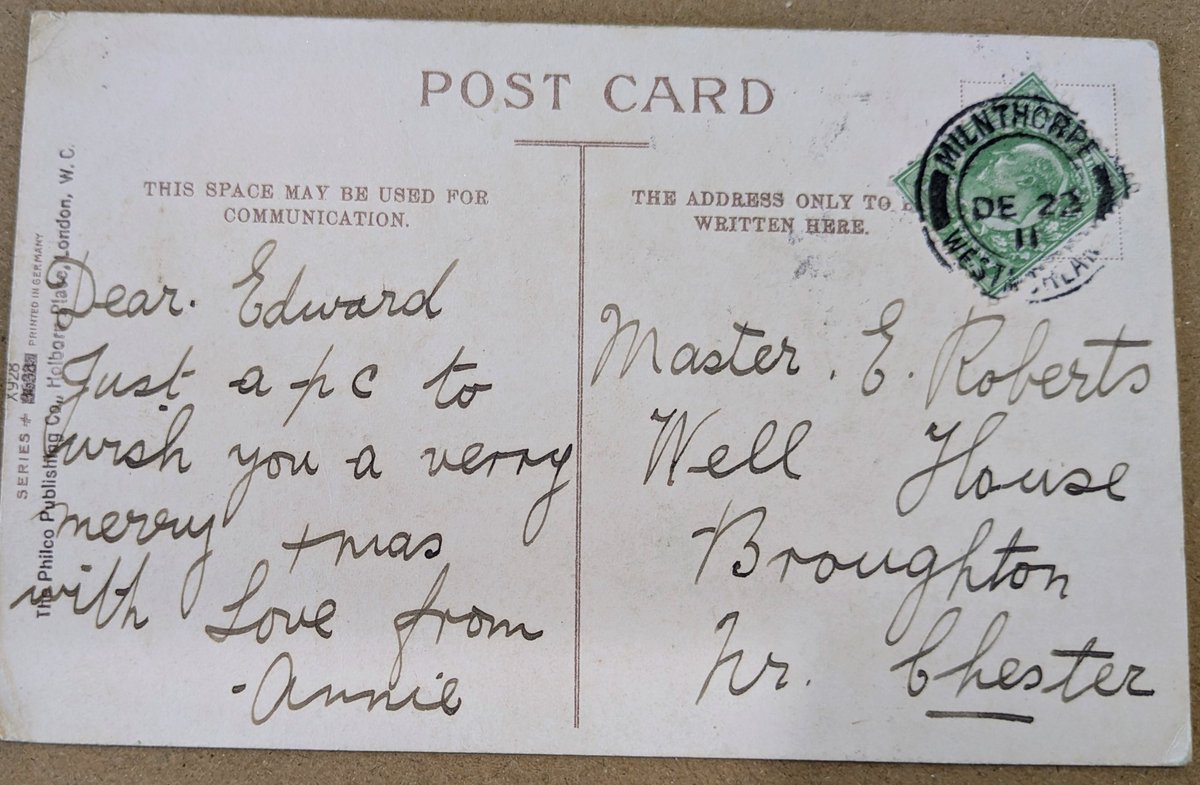 POST CARD
THIS SPACE MAY BE USED FOR
COMMUNICATION.
THE ADDRESS ONLY TO
WRITTEN HERE.
MILNTHORPE
DE 22
11
Dear. Edward
Just a pc to
wish you a verry
merry xmas
with Love from
-Annie
Master. E. Roberts
Well House
Broughton
Nr. Chester
The Philco Publishing Co., Holborn Place, London, W. C.
SERIES
X928
PRINTED IN GERMANY